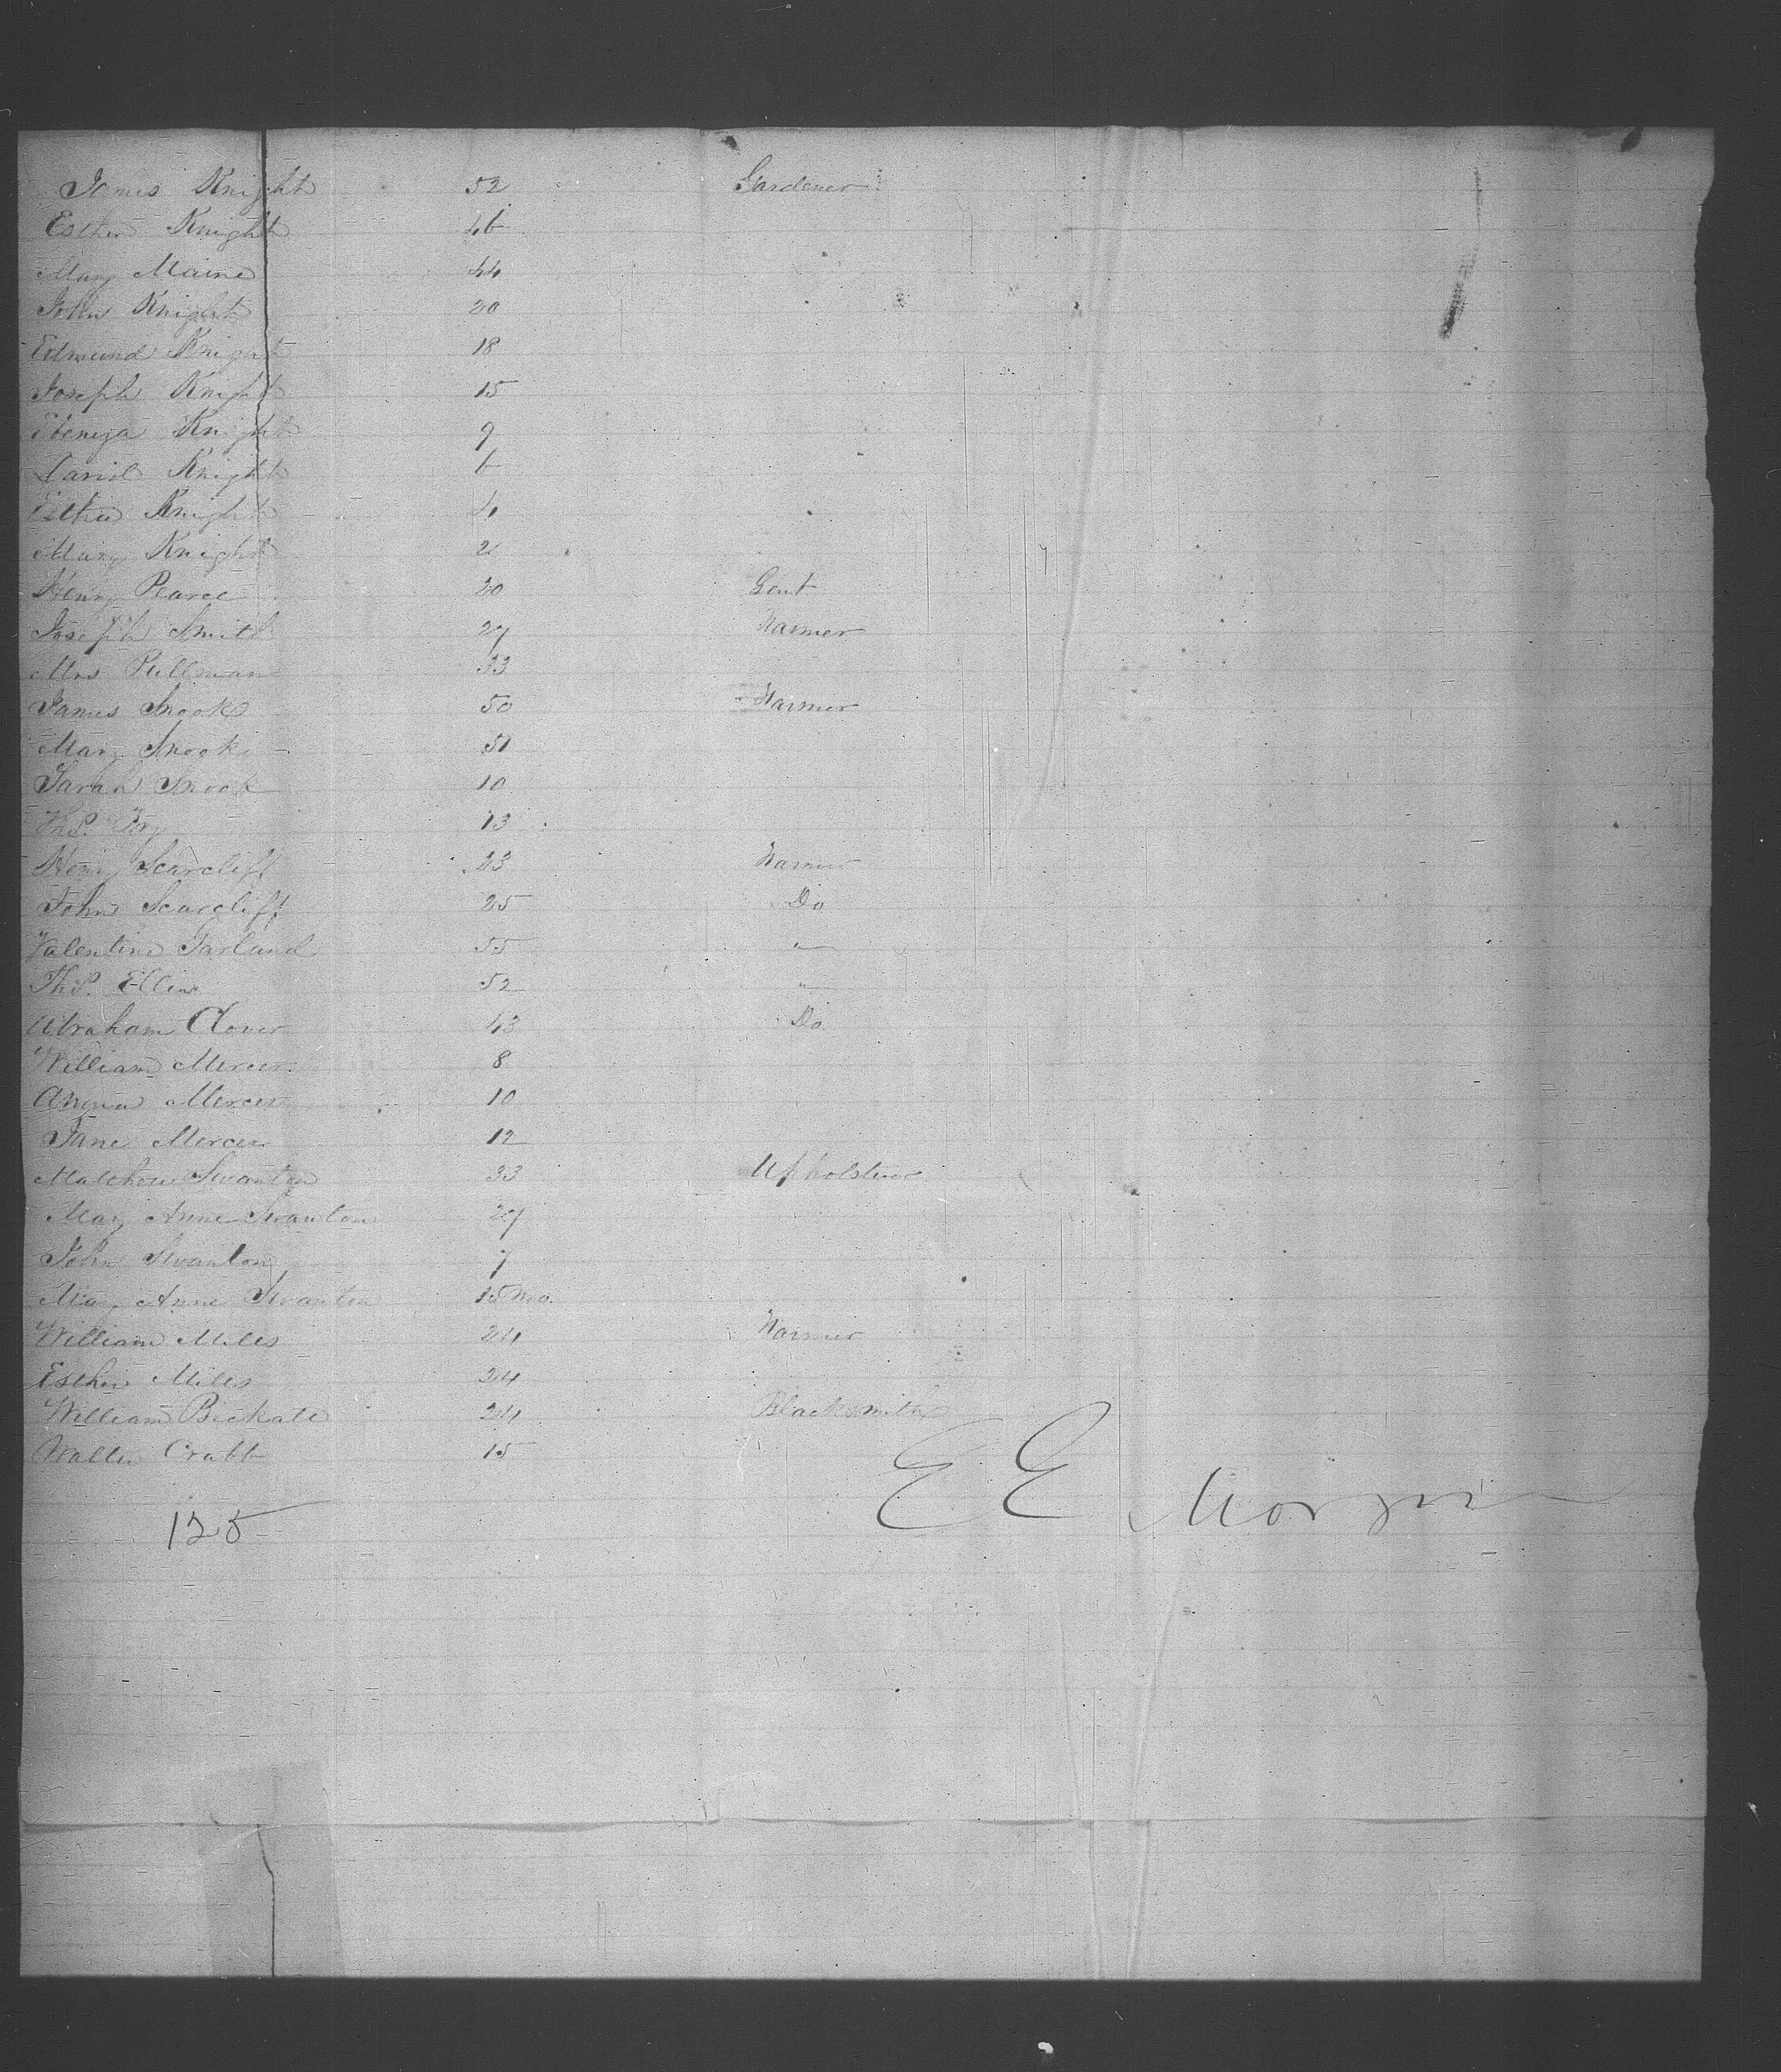 James Knight 52 Gardener
Esther Knight 46
Mary Maine 44
John Knight 20
Edmund Knight 18
Joseph Knight 15
Knight 9
David Knight 6
Esther Knight 4
Mary Knight 2
Henry Pearce 20 Gent
Joseph Smith 27 Farmer
Mrs Pullman 33
James Snook 50 Farmer
Mary Snook 51
Sarah Snook 10
Thos. 13
Henry Scarcliff 23 Farmer
John Scarcliff 25 Do
Valentine Garland 55 "
Thos. Ellis 52 "
Abraham Clover 43 Do
William Mercer 8
Mercer 10
Jane Mercer 12
Matthew Swanton 33 Upholsterer
Mary Anne Swanton 27
John Swanton 7
Mary Anne Swanton 15 Mo.
William Miles 24 Farmer
Esther Miles 24
William Bickale 24 Blacksmith
Walter Crabb 15
E E Morgan
125